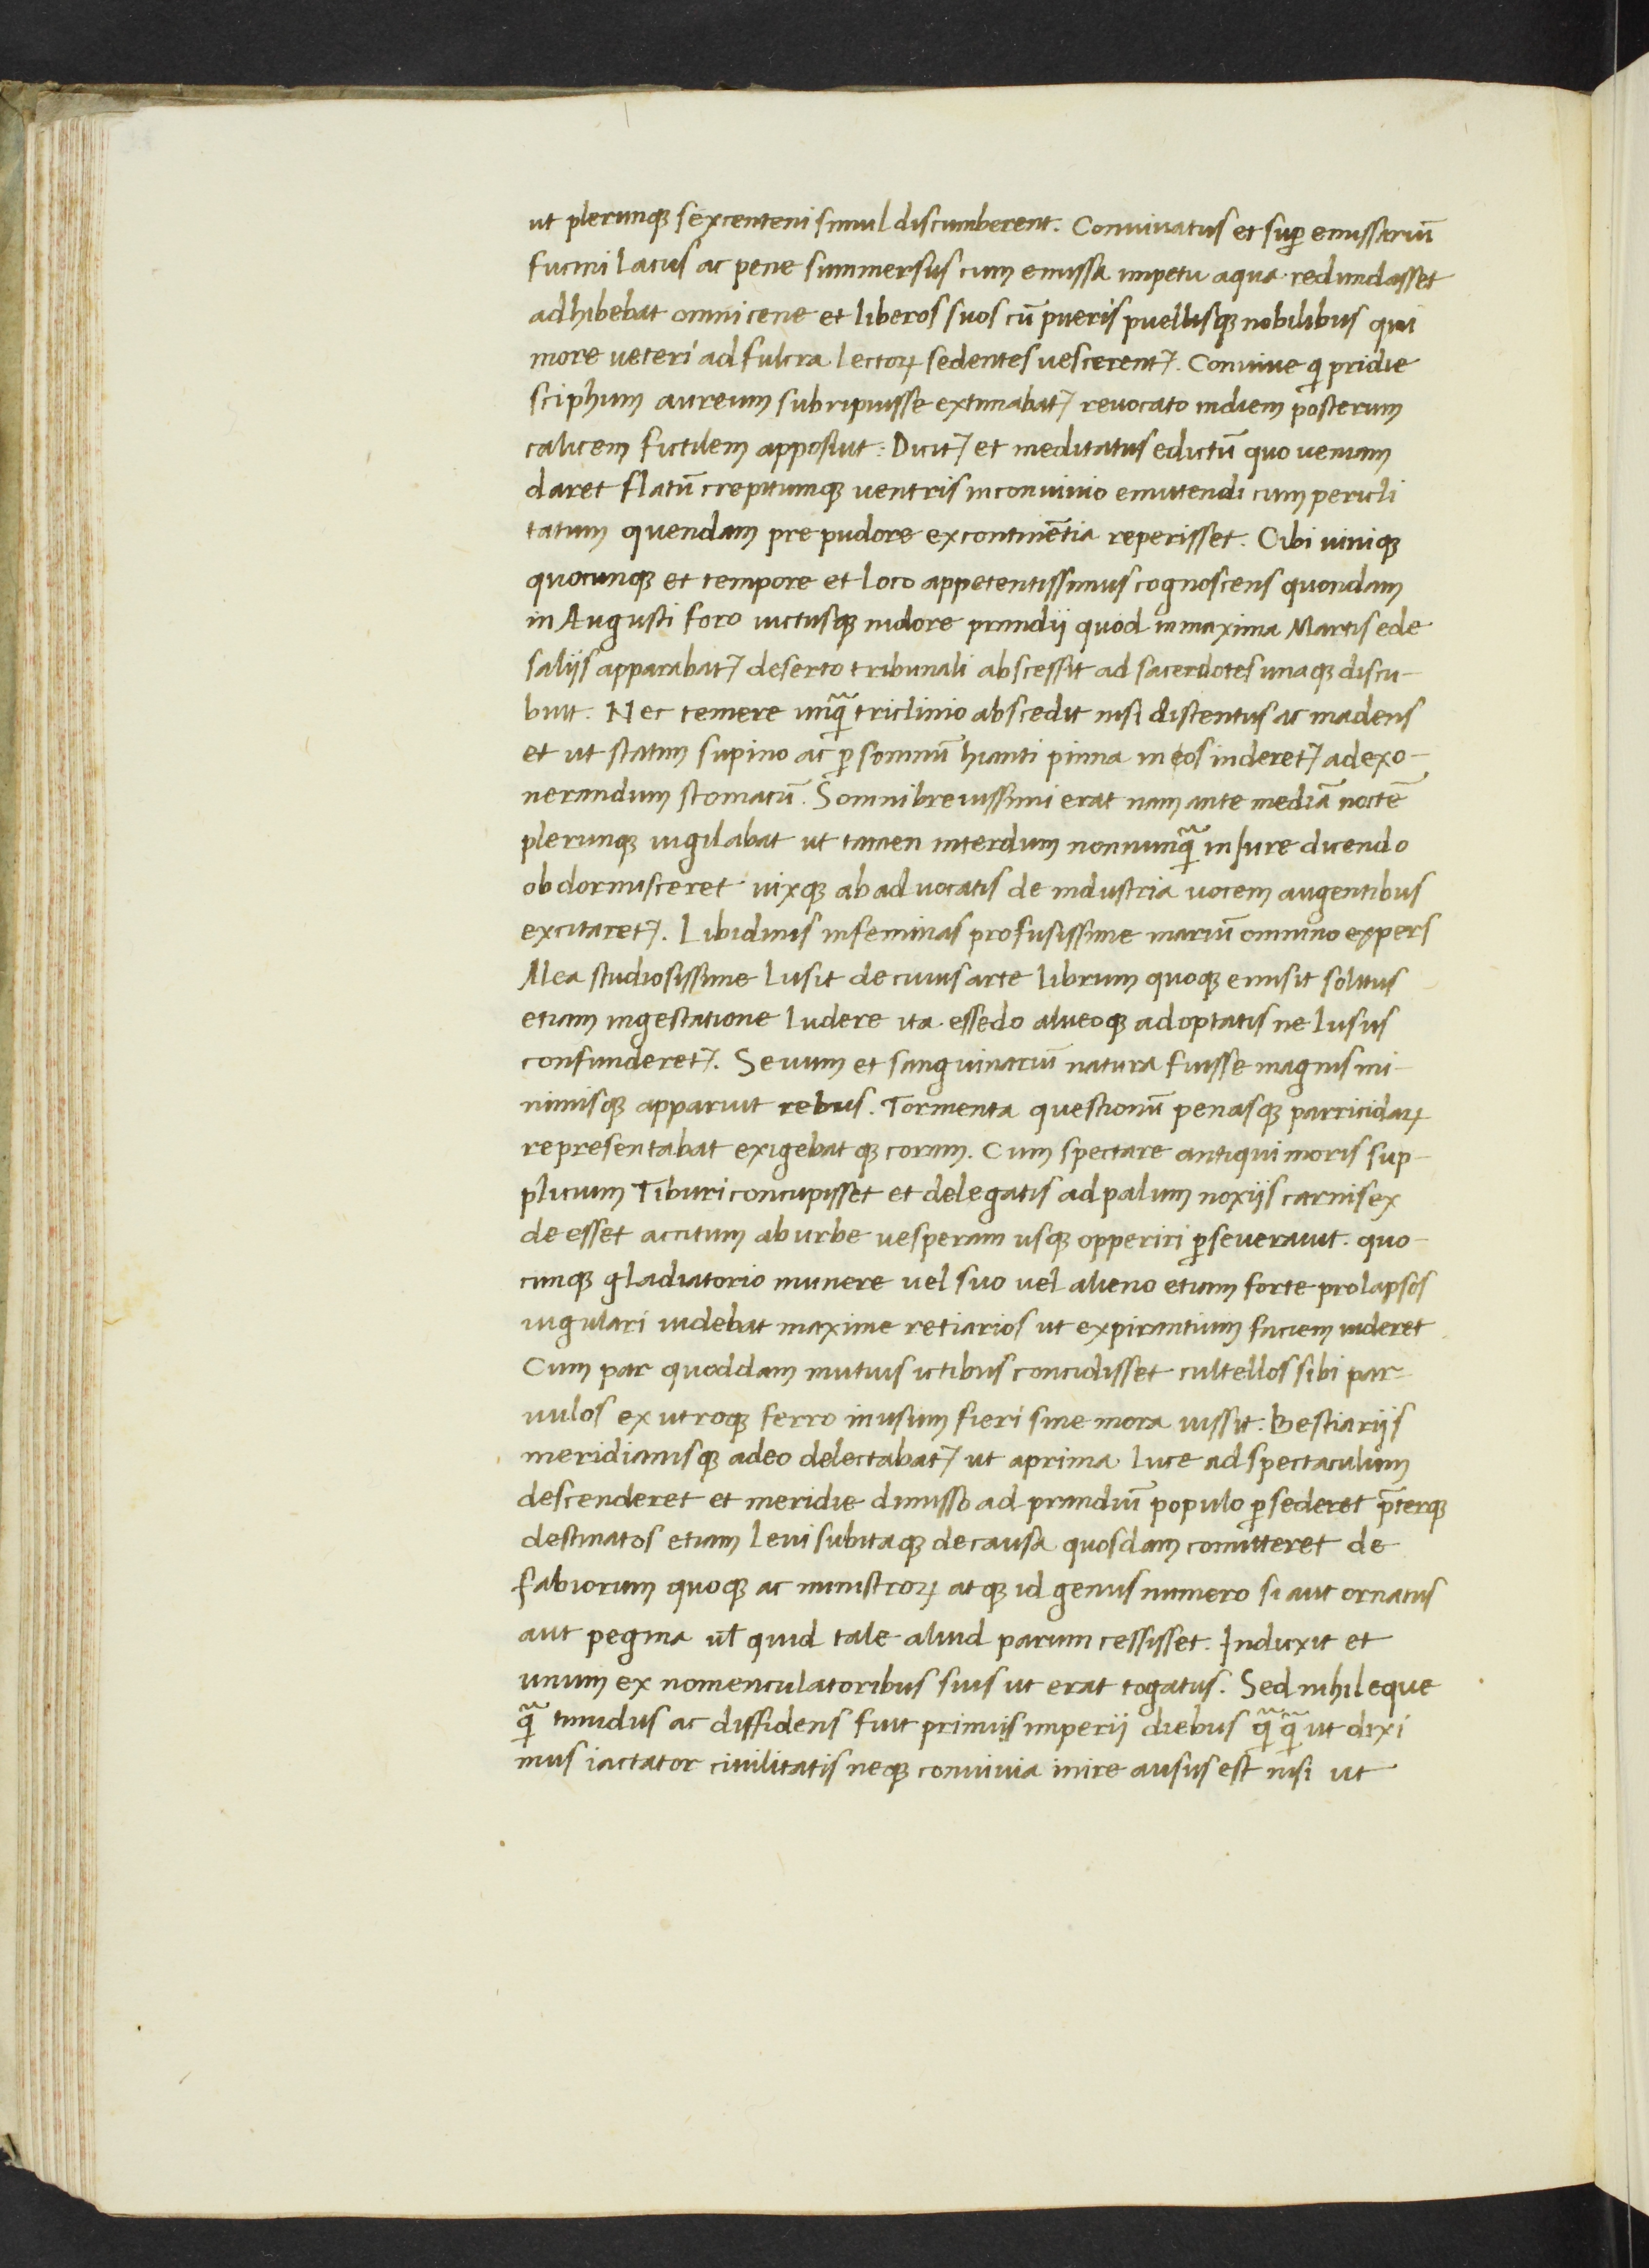 ut plerunq; sexcenteni simul discumberent. Conuiuatus et sup emissariū
fucini lacus ac pene summersus cum emissa impetu aqua redundasset
adhibebat omni cene et liberos suos cū pueris puellisq; nobilibus qui
more ueteri ad fulcra lectoꝝ sedentes uescerent᷑. Conuiue q pridie
sciphum aureum subripuisse extimabat᷑ reuocato in diem posterum
calicem fictilem apposuit: Dicit᷑ et meditatus edictū quo ueniam
daret flatū crepitumq; uentris in conuiuio emittendi cum pericli
tatum quendam pre pudore ex continētia reperisset. Cibi uiniq;
quocunq; et tempore et loco appetentissimus cognoscens quondam
in Augusti foro ictusq; nidore prandii quod in maxima Martis ede
saliis apparabat᷑ deserto tribunali abscessit ad sacerdotes unaq; discu-
buit. Nec temere unq̃ triclinio abscedit nisi distentus ac madens
et ut statim supino ac ꝑ somnū hianti pinna in eos inderet᷑ ad exo-
nerandum stomacū. Somni breuissimi erat nam ante mediā noctē
plerunq; uigilabat ut tamen interdum nonnunq̃ in Iure dicendo
obdormisceret uixq; ab aduocatis de industria uocem augentibus
excitaret᷑. Libidinis in feminas profusissime mariū omnino expers
Alea studiosissime lusit de cuius arte librum quoq; emisit solitus
etiam in gestatione ludere ita essedo alueoq; adoptatis ne lusus
confunderet᷑. Seuum et sanguinariū natura fuisse magnis mi-
nimisq; apparuit rebus. Tormenta questionū penasq; parricidaꝝ
representabat exigebatq; coram. Cum spectare antiqui moris sup-
plicium Tiburi concupisset et delegatis ad palum noxiis carnifex
deesset accitum ab urbe uesperam usq; opperiri ꝑseuerauit. quo-
cunq; gladiatorio munere uel suo uel alieno etiam forte prolapsos
iugulari iudebat maxime retiarios ut expirantium faciem uideret
Cum par quoddam mutuis ictibus concidisset cultellos sibi par-
uulos ex utroq; ferro in usum fieri sine mora iussit. Bestiariis
meridianisq; adeo delectabat᷑ ut a prima luce ad spectaculum
descenderet et meridie dimisso ad prandiū populo ꝑsederet p̄terq;
destinatos etiam leui subitaq; de causa quosdam comitteret de
fabiorum quoq; ac ministroꝝ atq; id genus numero si aut ornatus
aut pegma ul̄ quid tale aliud parum cessisset. Induxit et
unum ex nomenculatoribus suis ut erat togatus. Sed nihil eque
q̃ timidus ac diffidens fuit primis imperii diebus q̃q̃ ut dixi
mus iactator ciuilitatis neq; conuiuia inire ausus est nisi ut